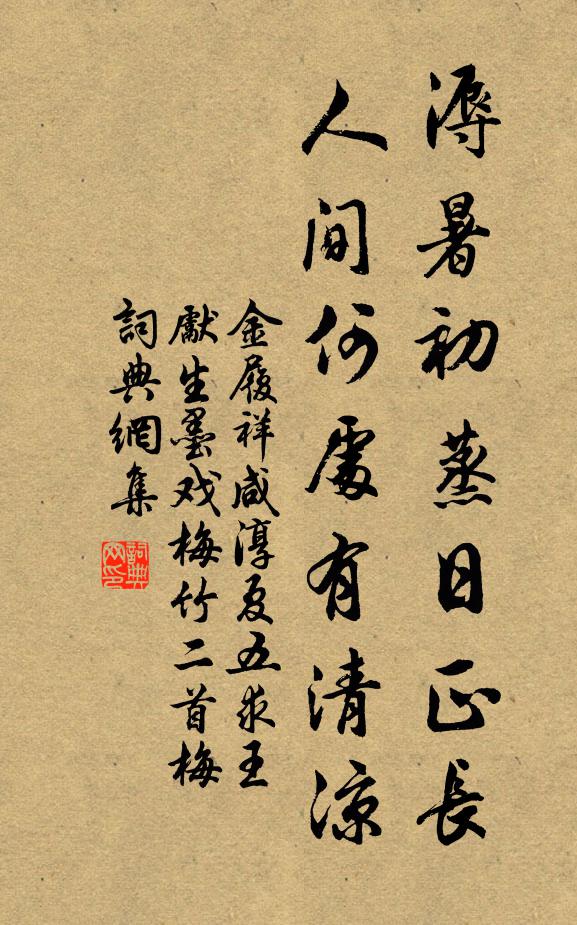 溽暑初蒸日正長
人間何處有清涼
金履祥咸淳夏五求王
獻生墨戏梅竹二首梅
詞典網集
詞典网印